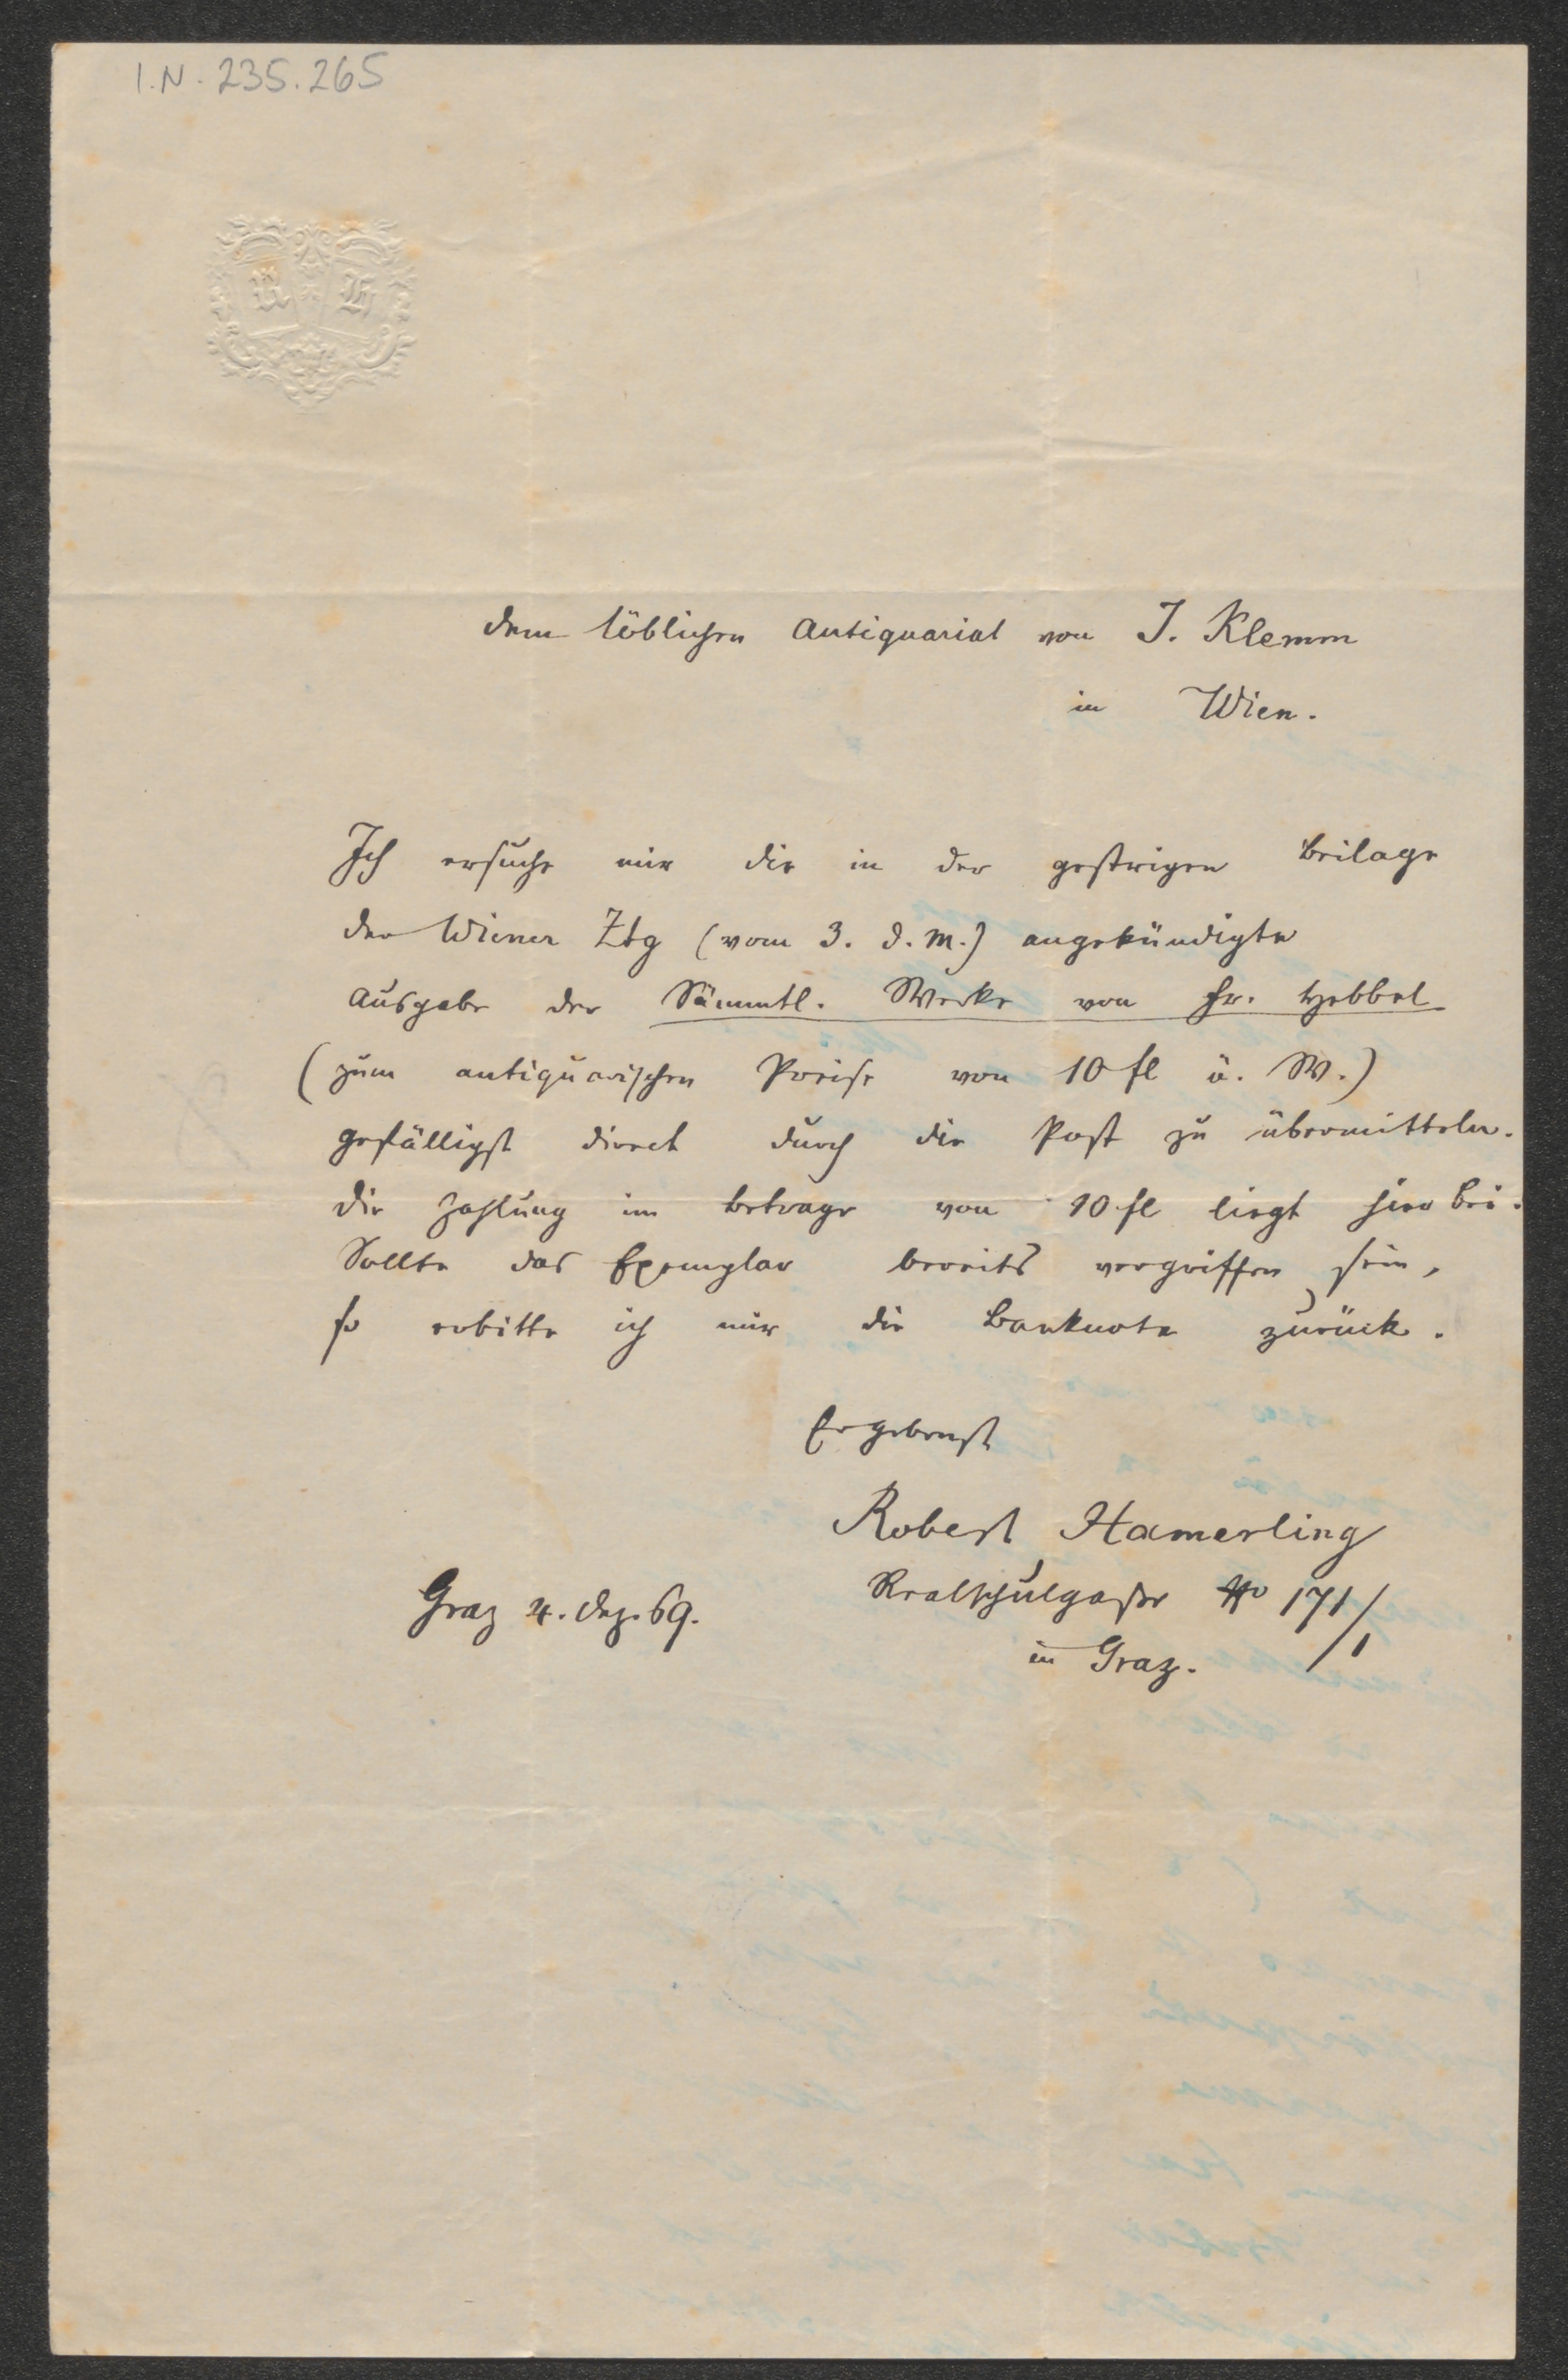 I.N. 235.265
R H
Dem löblichen Antiquariat von J. Klemm
in Wien.
Ich ersuche mir die in der gestrigen Beilage
der Wiener Ztg (vom 3. d. M.) angekündigte
Ausgabe der Sämmtl. Werke von Fr. Hebbel
(zum antiquarischen Preise von 10 fl ö. W.)
gefälligst direct durch die Post zu übermitteln.
Die Zahlung im Betrage von 10 fl liegt hier bei.
Sollte das Exemplar bereits vergriffen sein,
so erbitte ich mir die Banknote zurück.
Ergebenst
Robert Hamerling
Realschulgasse No 171/1
Graz 4. Dez. 69.
in Graz.